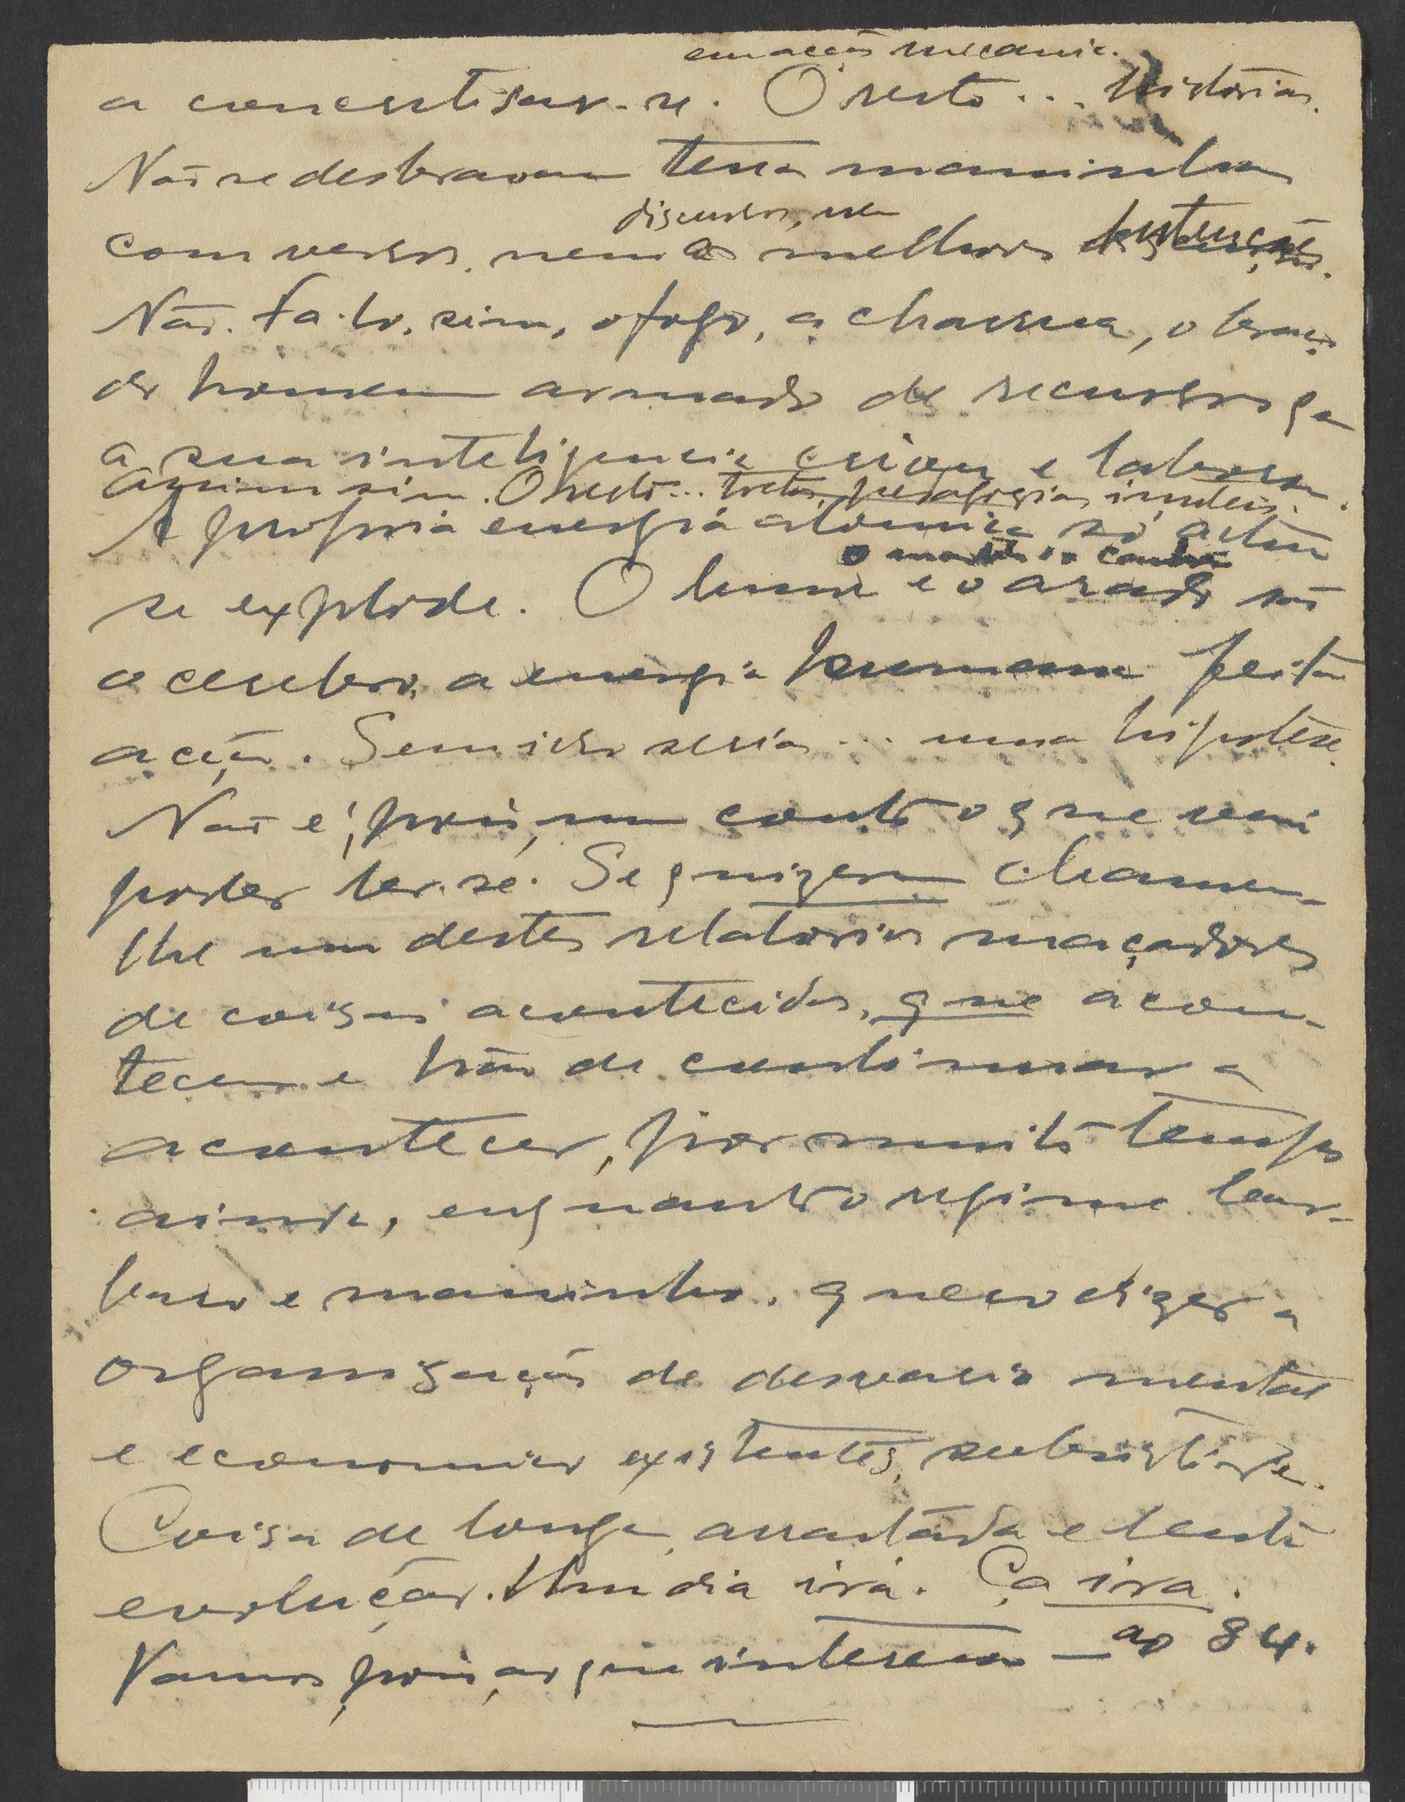 em acção mecanic.
a concretisar-se. O resto... Historias.
Não se desbravam terra maninha
discursos, nem
com versos, nem as melhores
Não. Fa-lo, sim, o fogo, a charrua, o braço
do homem armado de recursos que
a sua inteligencia criou e labora.
Assim sim. O resto... tretas, pedagogias inuteis.
A propria energia atomica só actua
se explode. O lume e o arado são
o cerebro, a energia humana feita
acção. Sem isso seria... uma hipotese.
Não é, pois, um conto o que vem
poder ler-se. Se quizerem chamem-
lhe um destes relatorios maçadores
de coisas acontecidas, que acon-
tecem e hão de continuar a
acontecer, por muito tempo
ainda, enquanto o regime bar-
baro e maninho, quero dizer a
organização de desvario mental
e economico existentes, subsistirem.
Coisa de longa, arrastada e lenta
evolução. Um dia irá. Ça ira.
Vamos, pois, ao que interessa — ao 84.